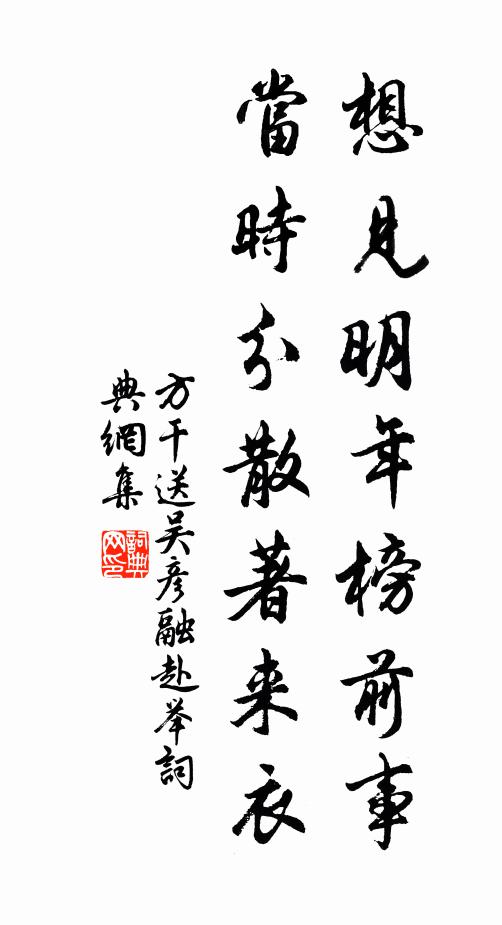 想見明年榜前事
當時分散著来衣
方干送吴彦融赴举詞
典網集
詞典网印